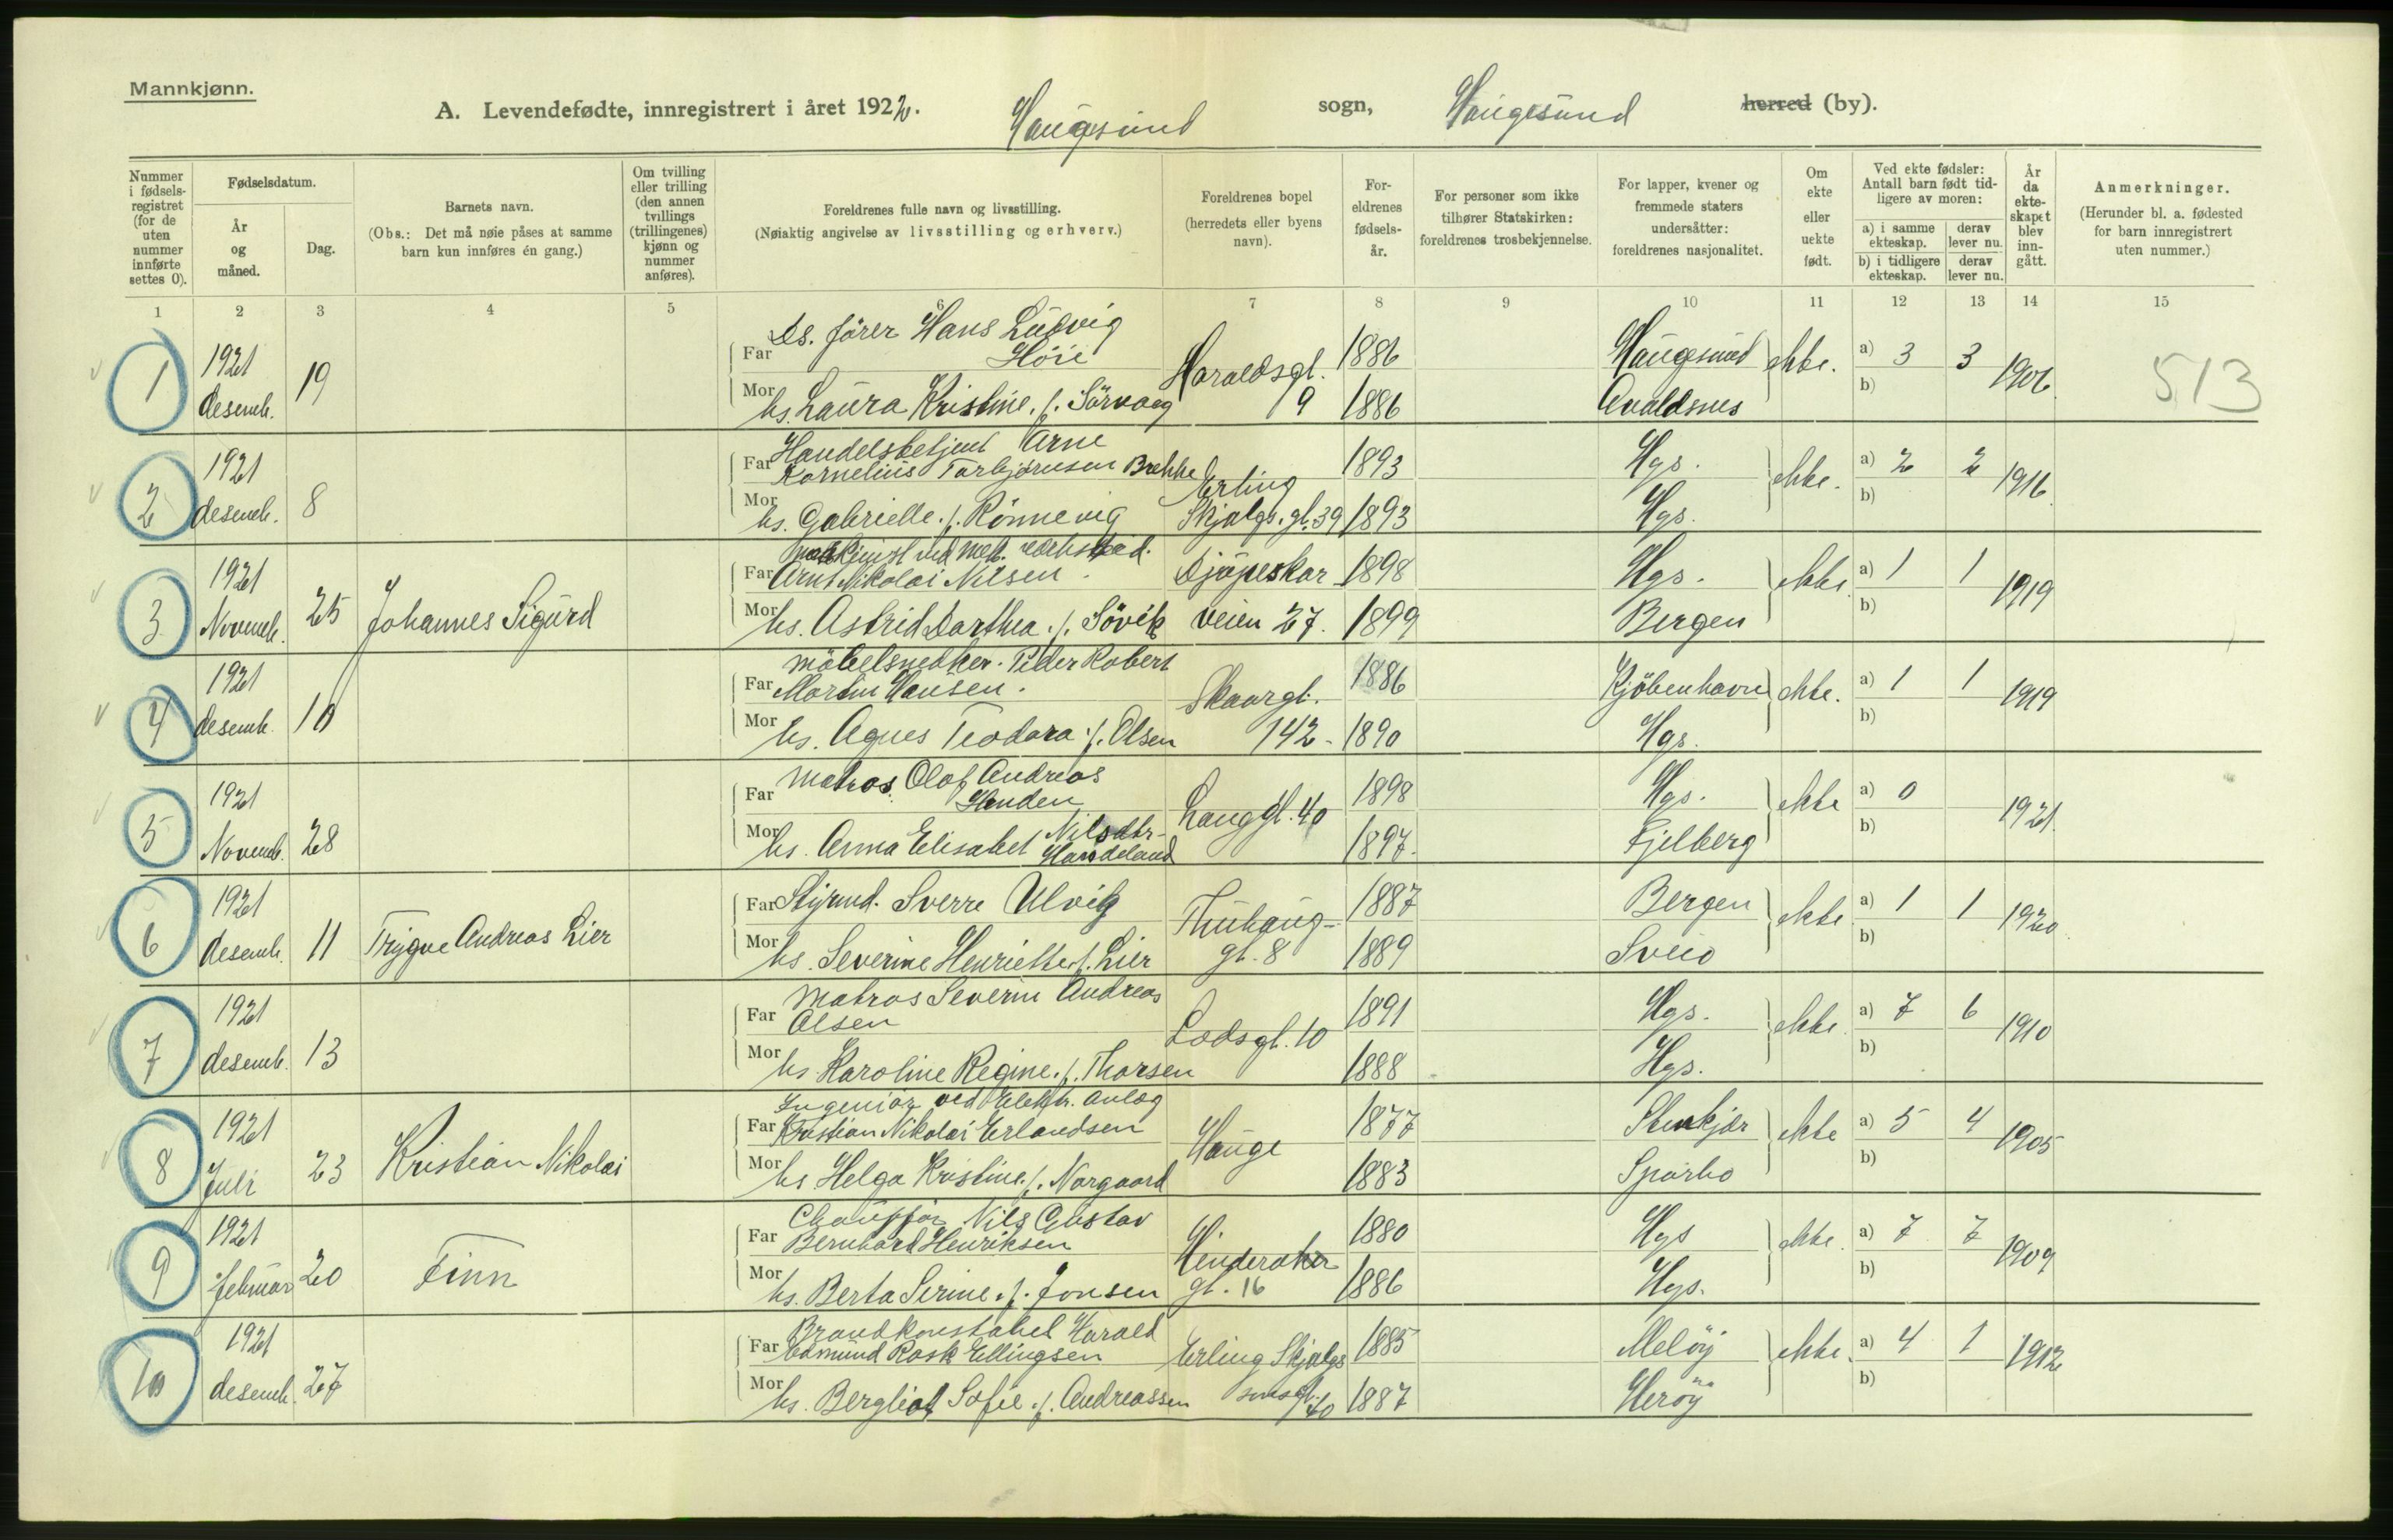 Mannkjønn.
A. Levendefødte, innregistrert i året 1922. Haugesund sogn, Haugesund herred (by).
Nummer i fødsels-registret (for de uten nummer innførte settes 0).
Fødselsdatum.
År og måned.
Dag.
Barnets navn.
(Obs.: Det må nøie påses at samme barn kun innføres én gang.)
Om tvilling eller trilling (den annen tvillings (trillingenes) kjønn og nummer anføres).
Foreldrenes fulle navn og livsstilling.
(Nøiaktig angivelse av livsstilling og erhverv.)
Foreldrenes bopel
(herredets eller byens navn).
For-eldrenes fødsels-år.
For personer som ikke tilhører Statskirken: foreldrenes trosbekjennelse.
For lapper, kvener og fremmede staters undersåtter: foreldrenes nasjonalitet.
Om ekte eller uekte født.
Ved ekte fødsler: Antall barn født tid-ligere av moren:
a) i samme ekteskap.
derav lever nu.
b) i tidligere ekteskap.
derav lever nu.
År da ekte-skapet blev inn-gått.
Anmerkninger.
(Herunder bl. a. fødested for barn innregistrert uten nummer.)
1 2 3 4 5 6 7 8 9 10 11 12 13 14 15
1 1921 desemb. 19
Far Ds. fører Hans Ludvig Høie Haraldsgt. 9 1886 Haugesund ekte. a) 3 3 1906 513
Mor hs. Laura Kristine f. Sørvaag 1886 Avaldsnes b)
2 1921 desemb. 8
Far Handelsbetjent Arne Kornelius Torbjørnsen Brekke Erling Skjalgs. gt. 39 1893 Hgs. ekte. a) 2 2 1916
Mor hs. Gabrielle f. Rønnevig 1893 Hgs. b)
3 1921 Novemb. 25 Johannes Sigurd
Far Maskinist ved mek. verksted. Arnt Nikolai Nilsen. Djupeskar veien 27. 1898 Hgs. ekte a) 1 1 1919
Mor hs. Astrid Dorthea f. Søvik 1899 Bergen b)
4 1921 desemb. 10
Far Møbelsnedker. Peder Robert Martin Hansen. Skaargt. 142 1886 Kjøbenhavn ekte. a) 1 1 1919
Mor hs. Agnes Teodora f. Olsen 1890 Hgs. b)
5 1921 Novemb. 28
Far Matros Olaf Andreas Handen Langgt. 40 1898 Hgs. ekte a) 0 1921.
Mor hs. Anna Elisabet Nilsdtr. Handeland 1897. Fjelberg b)
6 1921 desemb. 11 Trygve Andreas Lier
Far Styrmd. Sverre Ulvik Thuhaug-gt. 8 1887 Bergen ekte a) 1 1 1920
Mor hs. Severine Henriette f. Lier 1889 Sveio b)
7 1921 desemb. 13
Far Matros Severin Andreas Olsen Lodsgt. 10 1891 Hgs. ekte a) 7 6 1910
Mor hs Karoline Regine f. Thorsen 1888 Hgs. b)
8 1921 Juli 23 Kristian Nikolai
Far Ingeniør ved Elektr. anlæg Kristian Nikolai Erlandsen Hauge 1877 Stenkjær ekte a) 5 4 1905
Mor hs Helga Kristine f. Norgaard 1883 Sparbo b)
9 1921 februar 20 Finn
Far Chauffør Nils Gustav Bernhard Henriksen Hinderaker gt. 16 1880 Hgs ekte. a) 7 7 1909
Mor hs. Berta Serine f. Jonsen 1886 Hgs. b)
10 1921 desemb. 27
Far Brandkonstabel Harald Edmund Rask Ellingsen Erling Skjalgs sonsgt. 40 1885 Meløy ekte. a) 4 1 1912
Mor hs. Bergliot Sofie f. Andreassen 1887 Herøy b)